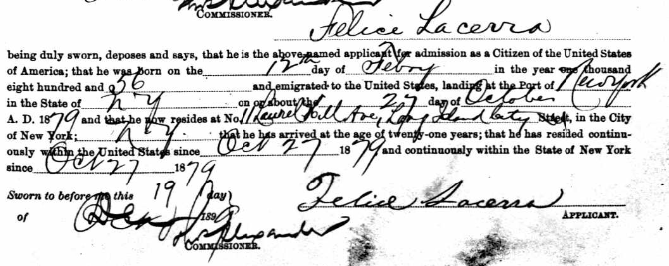 COMMISSIONER.
Felice Lacerra
being duly sworn, deposes and says, that he is the above-named applicant for admission as a Citizen of the United States
of America; that he was born on the 12th day of Febry in the year one thousand
eight hundred and 36 and emigrated to the United States, landing at the Port of New York
in the State of N.Y. on or about the 27 day of October
A. D. 1879 and that he now resides at No. Laurel Hill Ave, Long Island City Street, in the City
of New York; N.Y. that he has arrived at the age of twenty-one years; that he has resided continu-
ously within the United States since Oct 27 1879 and continuously within the State of New York
since Oct 27 1879
Sworn to before me this 19 day Felice Lacerra
of 189 APPLICANT.
Alexander
COMMISSIONER.